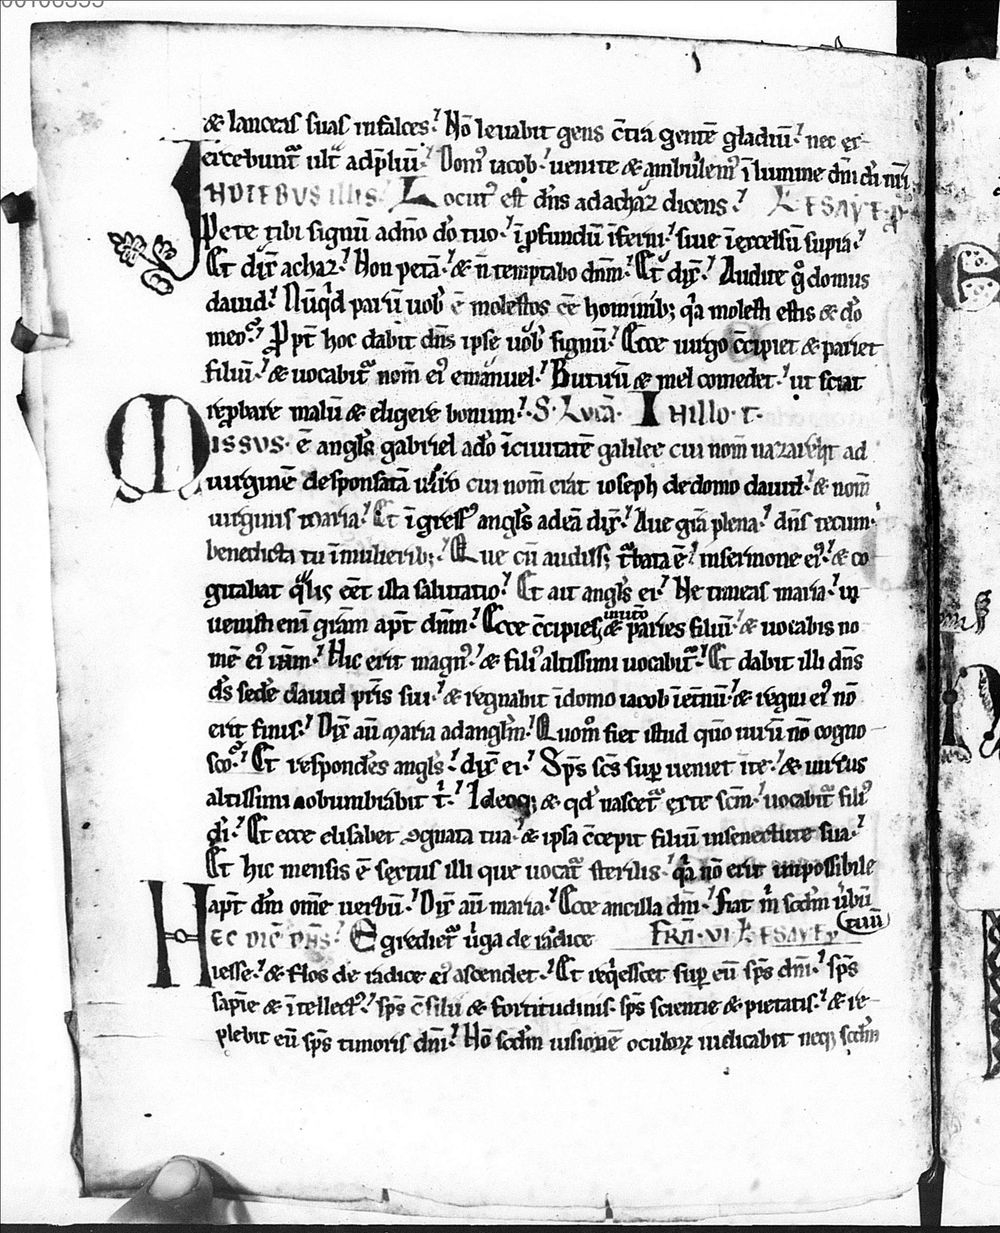 & lanceas suas in falces. Nō levabit gens c̄tra gentē gladiū. nec ex-
ercebuntᷣ ultᷣ ad p̄liū. Domꝰ iacob. uenite & ambulemꝰ ī lumine dn̄i dī nr̄i
IN DIEBUS ILLIS. Locutꝰ est dn̄s ad achaz dicens. L ESAYE P
Pete tibi signū a dn̄o dō tuo. ī p̱fundū īferni. siue ī excelsū supra.
Et dix̄ achaz. Non petā. & n̄ temptabo dn̄m. Et dix̄. Audite gͦ domus
dauid. Nūq̇d parū uob̄ ē molestos eē hominib; qᷓ molesti estis & dō
meo. Ppt̄ hoc dabit dn̄s ipse uob̄ signū. Ecce uirgo c̄cipiet & pariet
filiū. & uocabitᷣ nom̄ eiꝰ emanuel. Butirū & mel comedet. ut sciat
rep̱bare malū & eligere bonum. S. Lucā. IN illo. t.
MISSUS. ē angl̄s gabriel a dō ī ciuitatē galilee cui nom̄ nazareth ad
uirginē desponsatā uiro cui nom̄ erat ioseph de domo dauid. & nom̄
uirginis maria. Et īgressꝰ angl̄s ad eā dix̄. Aue gr̄a plena. dn̄s tecum.
benedicta tu ī mulierib;. Que cū audiss; tᷣbata ē. in sermone eiꝰ. & co
gitabat qᷓlis eēt ista salutatio. Et ait angl̄s ei. Ne timeas maria. in
uenisti eni gr̄am apt̄ dn̄m. Ecce c̄cipies in utō & paries filiū. & uocabis no
mē eiꝰ ih̄m. Hic erit magnꝰ. & filiꝰ altissimi uocabitᷣ. Et dabit illi dn̄s
ds̄ sedē dauid pr̄is sui. & regnabit ī domo iacob ī et̄nū. & regni eiꝰ nō
erit finis. Dix̄ au̅ maria ad angl̄m. Quom̊ fiet istud quō uirū nō cogno
sco. Et respondēs angl̄s. dix̄ ei. Sp̄s sc̄s suꝑ ueniet ī te. & uirtus
altissimi obumbrabit t̄. Ideoq; & qd̄ nascetᷣ ex te sc̄m. uocabitᷣ filiꝰ
dī. Et ecce elisabet ꝯgnata tua. & ipsa c̄cepit filiū in senectute sua.
Et hic mensis ē sextus illi que uocatᷣ sterilis. qᷓ nō erit impossibile
apt̄ dm̄ om̄e uerbū. Dix̄ au̅ maria. Ecce ancilla dn̄i. Fiat m̄ scd̄m u̅bū tuū
HEC DIC̄ DN̄S. Egredietᷣ uirga de radice FR̄A. VI. L ESAYE P
iesse. & flos de radice eiꝰ ascendet. Et req̇escet suꝑ eū sp̄s dn̄i. sp̄s
sapīe & ītellectꝰ. sp̄s c̄silii & fortitudinis. sp̄s scientie & pietatis. & re-
plebit eū sp̄s timoris dn̄i. Nō scd̄m uisionē oculoꝝ iudicabit neq; scd̄m